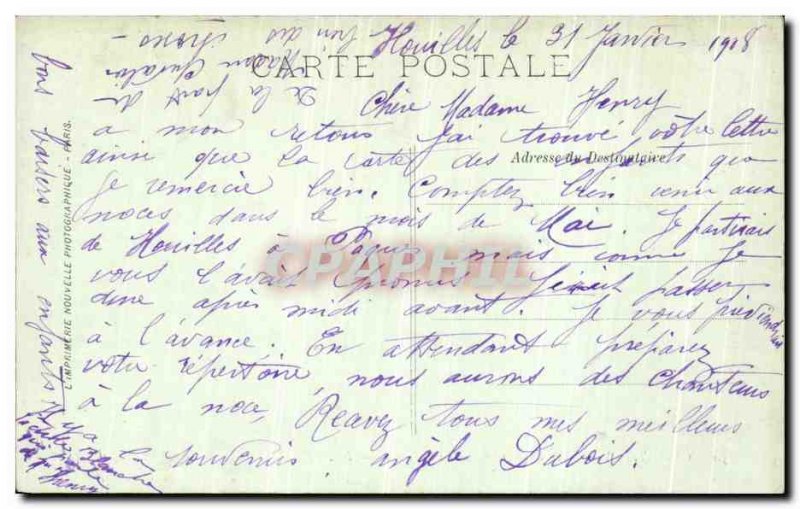 Houilles le 31 Janvier 1918
CARTE POSTALE
Chère Madame Henry
a mon retour J'ai trouvé votre lettre
ainsi que la carte des enfants que
Je remercie bien. Comptez bien venir aux
noces dans le mois de Mai. Je partirais
de Houilles à Paques mais comme Je
vous l'avait promis J'irait passer
une après midi avant. Je vous préviendrais
à l'avance. En attendant préparez
votre répertoire, nous aurons des chanteurs
à la noce, Recevez tous mes meilleurs
souvenirs. angèle Dubois.
Adresse du Destinataire
L'IMPRIMERIE NOUVELLE PHOTOGRAPHIQUE - PARIS.
bons baisers aux enfants
de la part de
CPAPHIL